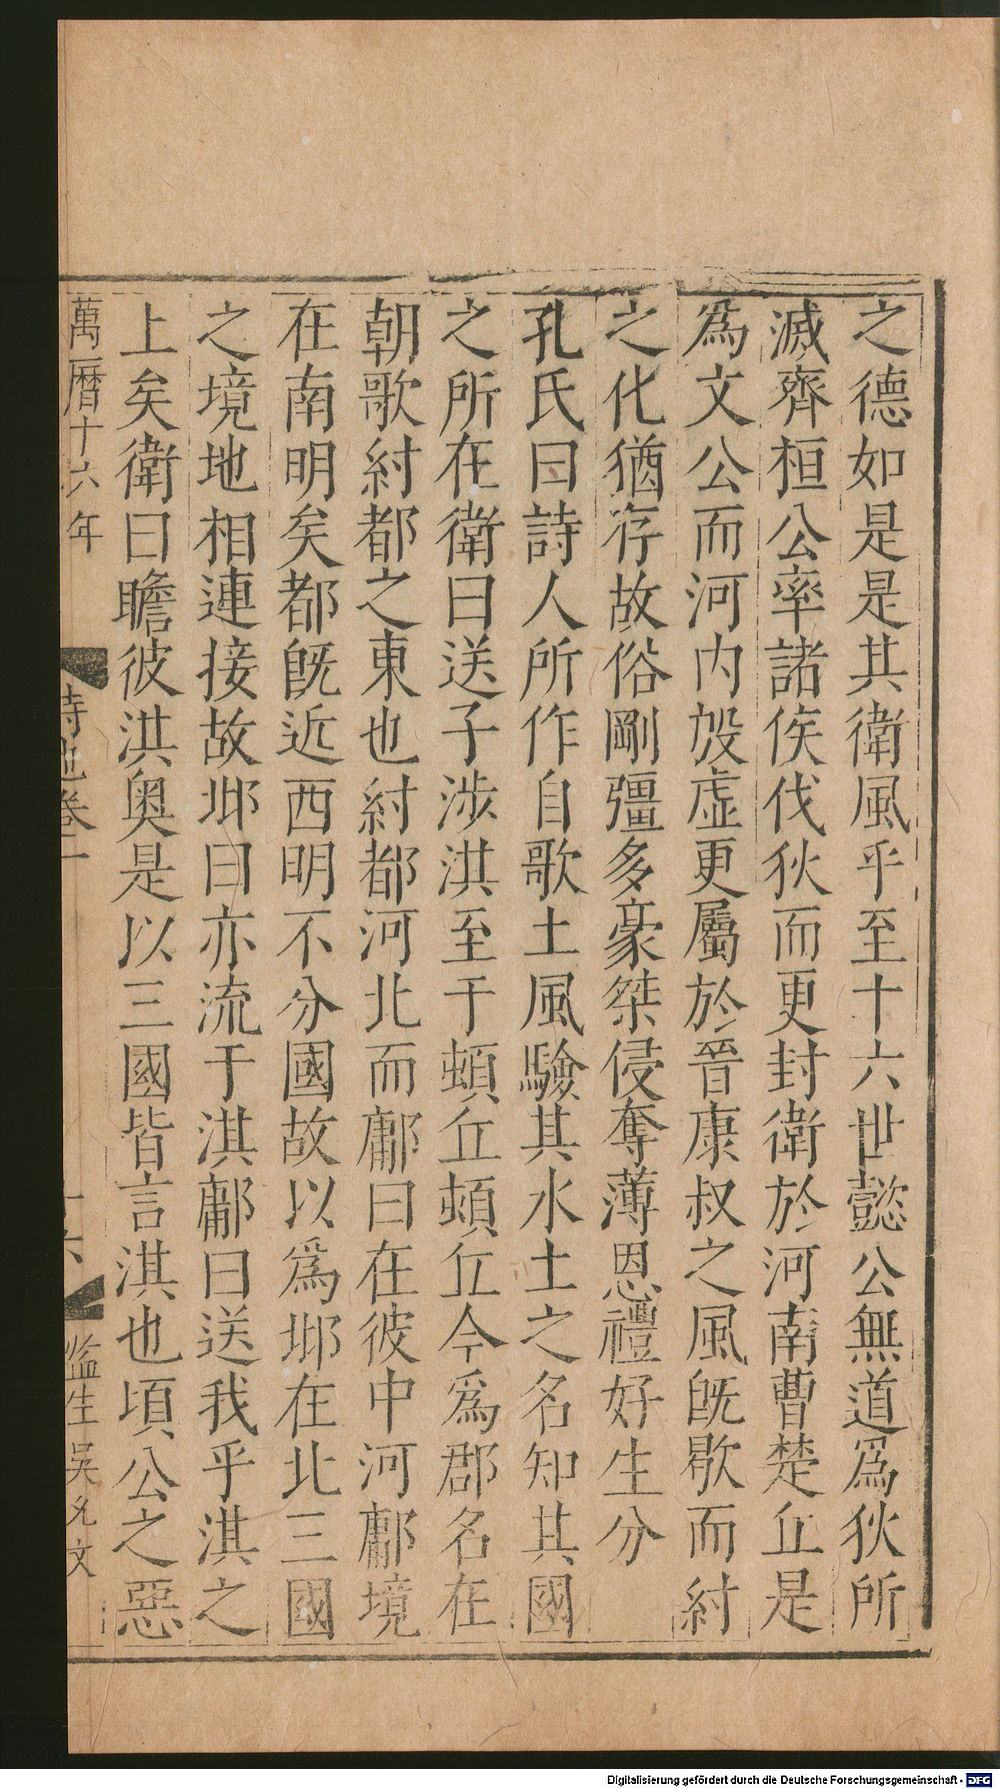 之德如是是其衛風乎至十六世懿公無道爲狄所
滅齊桓公率諸侯伐狄而更封衛於河南曹楚丘是
爲文公而河内殷虛更屬於晉康叔之風旣歇而紂
之化猶存故俗剛彊多豪桀侵奪薄恩禮好生分
孔氏曰詩人所作自歌土風驗其水土之名知其國
之所在衛曰送子涉淇至于頓丘頓丘今爲郡名在
朝歌紂都之東也紂都河北而鄘曰在彼中河鄘境
在南明矣都旣近西明不分國故以爲邶在北三國
之境地相連接故邶曰亦流于淇鄘曰送我乎淇之
上矣衛曰瞻彼淇奥是以三國皆言淇也頃公之惡
萬曆十六年
詩地卷一
十六
監生吳允文
Digitalisierung gefördert durch die Deutsche Forschungsgemeinschaft - DFG